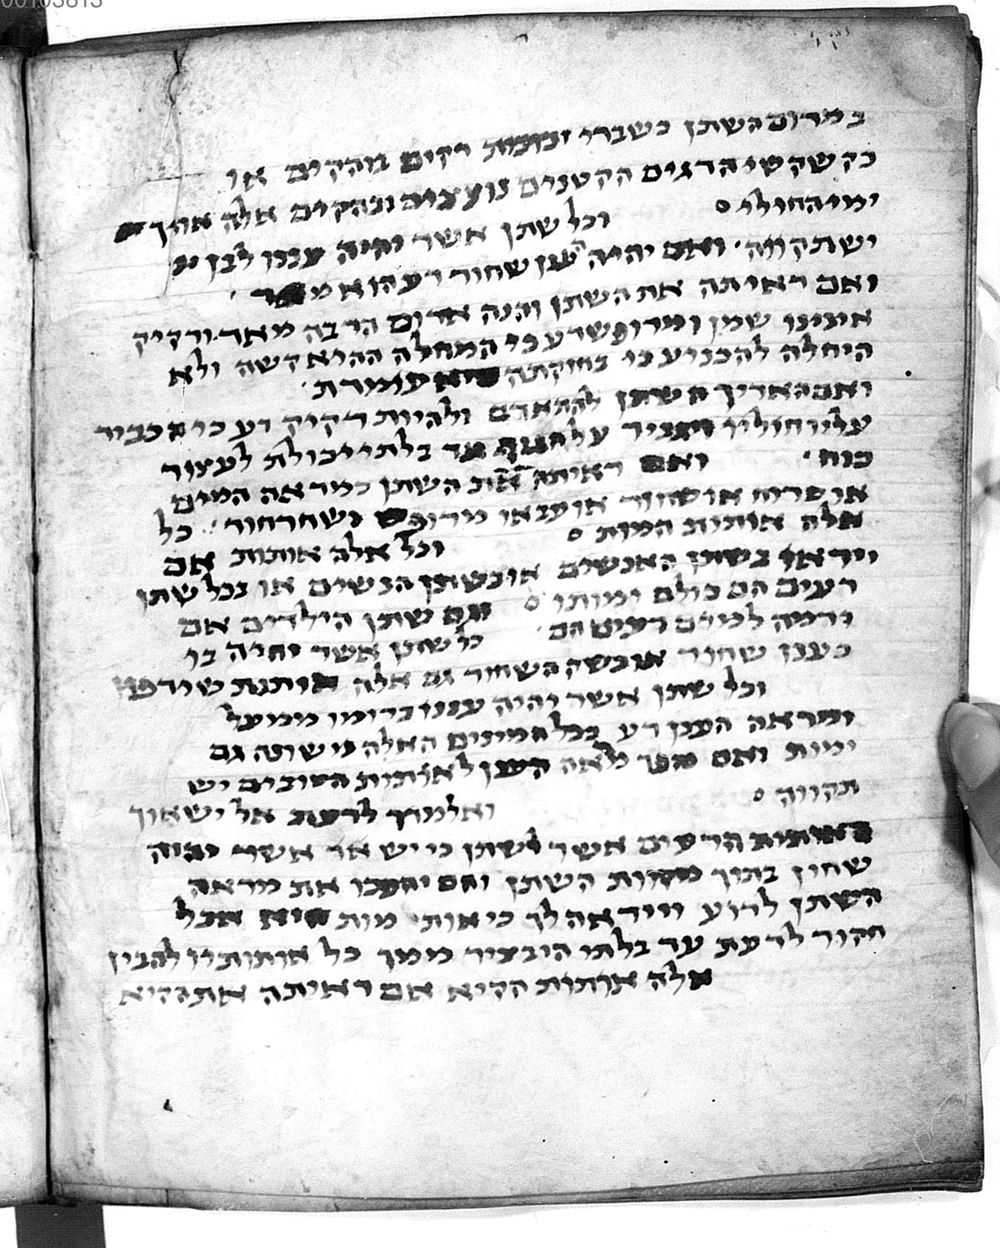 00103813
במרום השתן כשברי זכוכית רקים בוהקים או
כקשקשי הדגים הקטנים נוצצים ובוהקים אלה אורך
ימי החולי ⁰ וכל שתן אשר יהיה עננו לבן יש
יש תקווה ׳ ואם יהיה ענן שחור רע הוא מאד ׳
ואם ראיתה את השתן והנה אדום הרבה מאד ורקיק
איננו שמן ומרופש דע כי המחלה ההיא קשה ולא
היחלה להכניע כי בחוקתה היא עומדת ׳
ואם האריך השתן להתאדם ולהיות רקיק דע כי הכביר
עליו חוליו ויגביר על הגוף עד בלתי יכולת לעצור
כוח ׳ ואם ראיתה את השתן כמראה המים
או סרוח או שחור או עבאו מרופש כשחרחור ׳ כל
אלה אותות המות ⁰ וכל אלה אותות אם
ייראו בשתן האנשים או בשתן הנשים או בכל שתן
רעים הם כולם ימותו ⁰ וגם שתן הילדים אם
ידמה למים רעים הם ׳ כל שתן אשר יהיה בו
כענן שחור או כשה השחור גם אלה אותות
וכל שתן אשר יהיה עננו ברומו ממעל
ומראה הענן רע בכל המינים האלה גם
ימות ואם מראה הענן לאותות הטובים יש
תקווה ⁰ ואלמדך לדעת אל ישאוך
האותות הרעים אשר לשתן כי יש אד אשר יהיה
שחון בתוך השתן וגם יעכרו את מראה
השתן לרוע וייראה לך כי אותי מות היא אבל
חקור לדעת עד בלתי היבציר ממך כל אותותיו להבין
אלה אותות הקיא אם ראיתה את הקיא